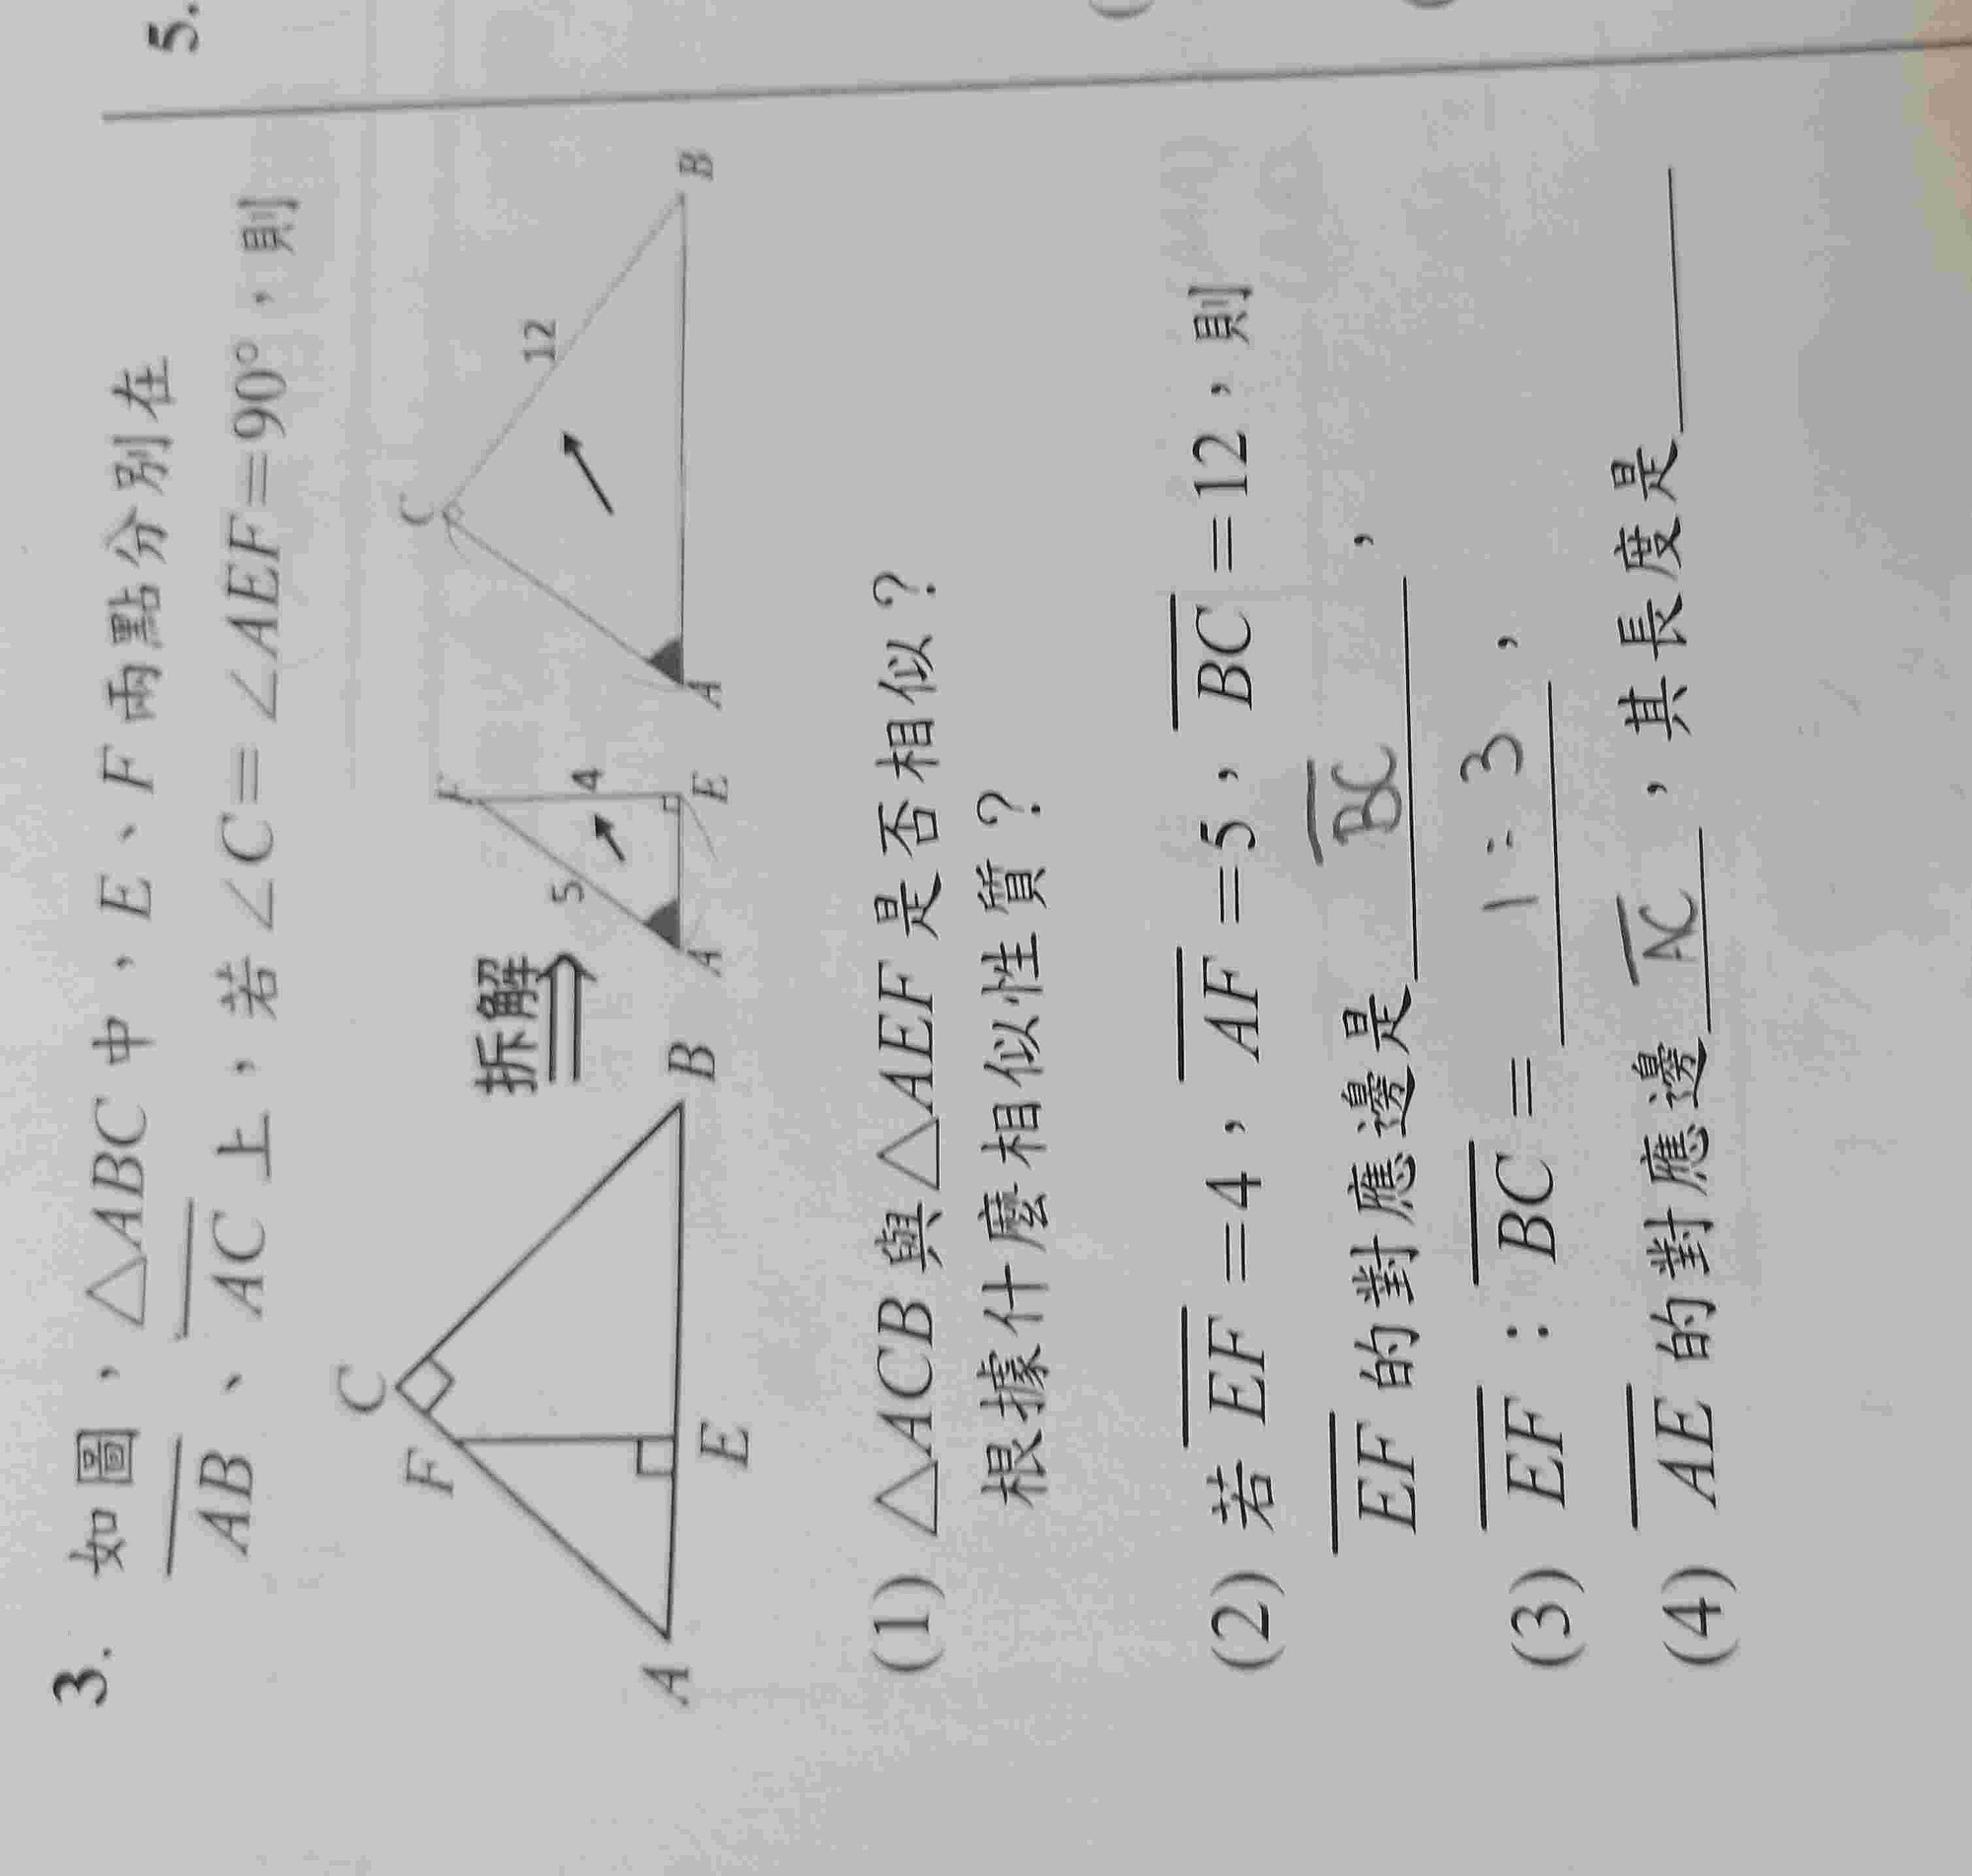 3. 如圖，△ABC 中，E、F 兩點分別在
AB、AC 上，若∠C=∠AEF=90°，則
C
F
A
E
B
拆解
F
5
4
A
E
C
12
A
B
(1) △ACB 與△AEF 是否相似？
根據什麼相似性質？
(2) 若 EF=4，AF=5，BC=12，則
EF 的對應邊是 BC，
(3) EF：BC= 1:3，
(4) AE 的對應邊 AC，其長度是
5.